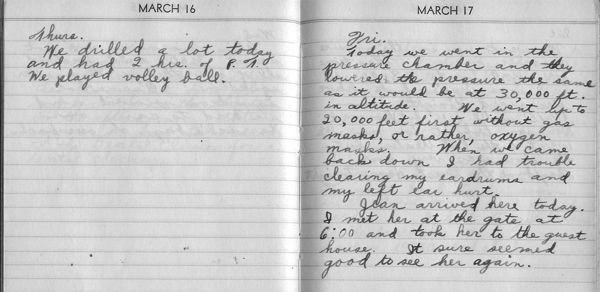 MARCH 16
Thurs.
We drilled a lot today
and had 2 hrs. of P. T.
We played volley ball.
MARCH 17
Fri.
Today we went in the
pressure chamber and they
lowered the pressure the same
as it would be at 30,000 ft.
in altitude. We went up to
20,000 feet first without gas
masks, or rather, oxygen
masks. When we came
back down I had trouble
clearing my eardrums and
my left ear hurt.
Jean arrived here today.
I met her at the gate at
6:00 and took her to the guest
house. It sure seemed
good to see her again.